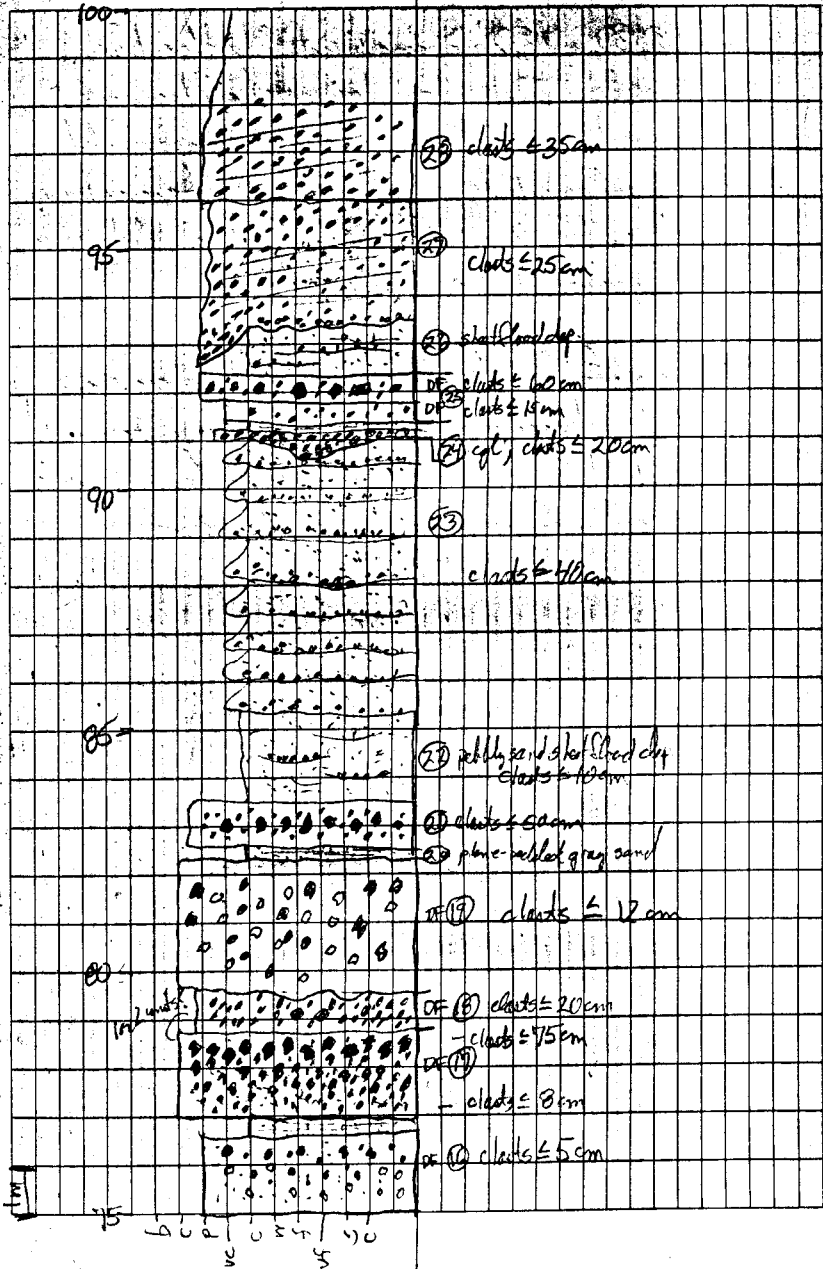 100
28 clasts ≤ 35cm
95
27
clasts ≤ 25cm
26 sheetflood dep.
DF clasts ≤ 60 cm
25
DF clasts ≤ 15cm
24 cgl, clasts ≤ 20cm
90
23
clasts ≤ 40cm
85
22 pebbly sand sheetflood dep
clasts ≤ 10cm
21 clasts ≤ 50cm
20 plane-bedded gray sand
DF 19 clasts ≤ 12 cm
80
1 or 2 units?
DF 18 clasts ≤ 20cm
- clasts ≤ 75cm
DF 17
- clasts ≤ 8cm
DF 16 clasts ≤ 5cm
1m
75
b c p vc c m f vf s c